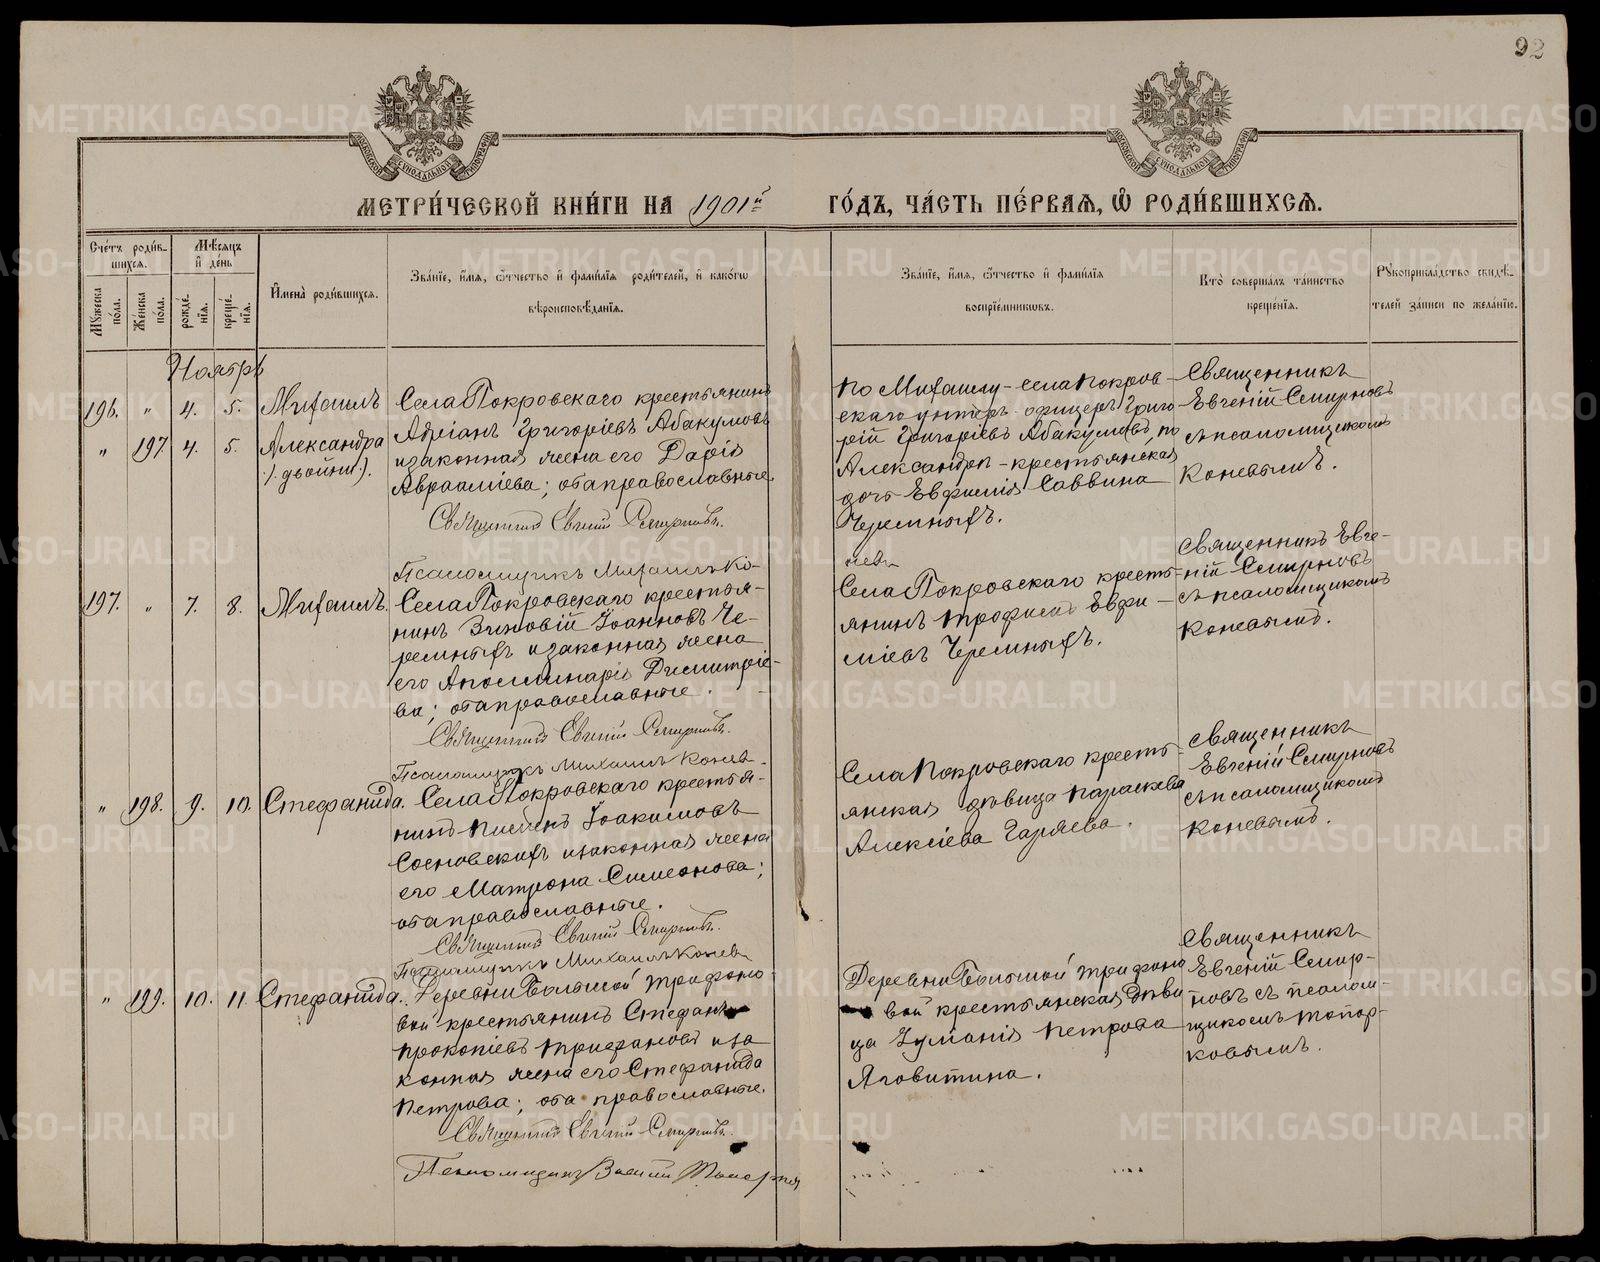 92
МЕТРИ́ЧЕСКОЙ КНИ́ГИ НА 1901й ГО́ДЪ, ЧА́СТЬ ПЕ́РВАЯ, Ѽ РОДИ́ВШИХСЯ.
Счетъ роди́в-
шихся.
Мꙋжеска по́ла.
Же́нска по́ла.
Мѣсяцъ и де́нь
рожде́нїя.
креще́нїя.
Имена̀ роди́вшихся.
Зва́нїе, и́мя, ѻ́тчество и фами́лїя роди́телей, и како́гѡ
вѣроисповѣ́данїя.
Зва́нїе, и́мя, ѻ́тчество и фами́лїя
воспрїе́мниковъ.
Кто̀ соверша́лъ та́инство
креще́нїя.
Рꙋкоприкла́дство свидѣ́-
телей за́писи по жела́нїю.
Ноябрь
196. " 4. 5. Михаилъ
" 197. 4. 5. Александра
/. двойни./.
Села Покровскаго крестьянинъ
Адріанъ Григоріевъ Абакумовъ
и законная жена его Дарія
Авраамiева; оба православные
Священникъ Евгеній Смирновъ.
Псаломщикъ Михаилъ Ко-
нев
По Михаилу - села Покров-
скаго унтеръ-офицеръ Григо
рій Григоріевъ Абакумовъ, по
Александрѣ - крестьянская
дочь Евфимія Саввина
Черемныхъ.
Священникъ
Евгеній Смирновъ
съ псаломщикомъ
Коневымъ.
197. " 7. 8. Михаилъ.
Села Покровскаго крестья-
нинъ Зиновій Іоанновъ Че-
ремныхъ и законная жена
его Аполлинарія Димитріе-
ва; оба православные.
Священникъ Евгеній Смирновъ.
Псаломщикъ Михаилъ Конев
Села Покровскаго кресть-
янинъ Трофимъ Евфи-
міевъ Черемныхъ.
Священникъ Евге-
ній Смирновъ
съ псаломщикомъ
Коневымъ.
" 198. 9. 10. Стефанида.
Села Покровскаго крестья-
нинъ Пименъ Іоакимовъ
Сосновскихъ и законная жена
его Матрона Симеонова;
оба православные.
Священникъ Евгеній Смирновъ.
Псаломщикъ Михаилъ Конев
Села Покровскаго кресть-
янская дѣвица Параскева
Алексіева Гаряева.
Священникъ
Евгеній Смирновъ
съ псаломщикомъ
Коневымъ.
" 199. 10. 11. Стефанида.
Деревни Большой Трифоно
вой крестьянинъ Стефанъ
Прокопіевъ Трифановъ и за
конная жена его Стефанида
Петрова; оба православные.
Священникъ Евгеній Смирновъ.
Псаломщикъ Василій
Деревни Большой Трифоно
вой крестьянская дѣви
ца Іуліанія Петрова
Яговитина.
Священникъ
Евгеній Смир-
новъ съ псалом-
щикомъ Топор-
ковымъ.
METRIKI.GASO-URAL.RU